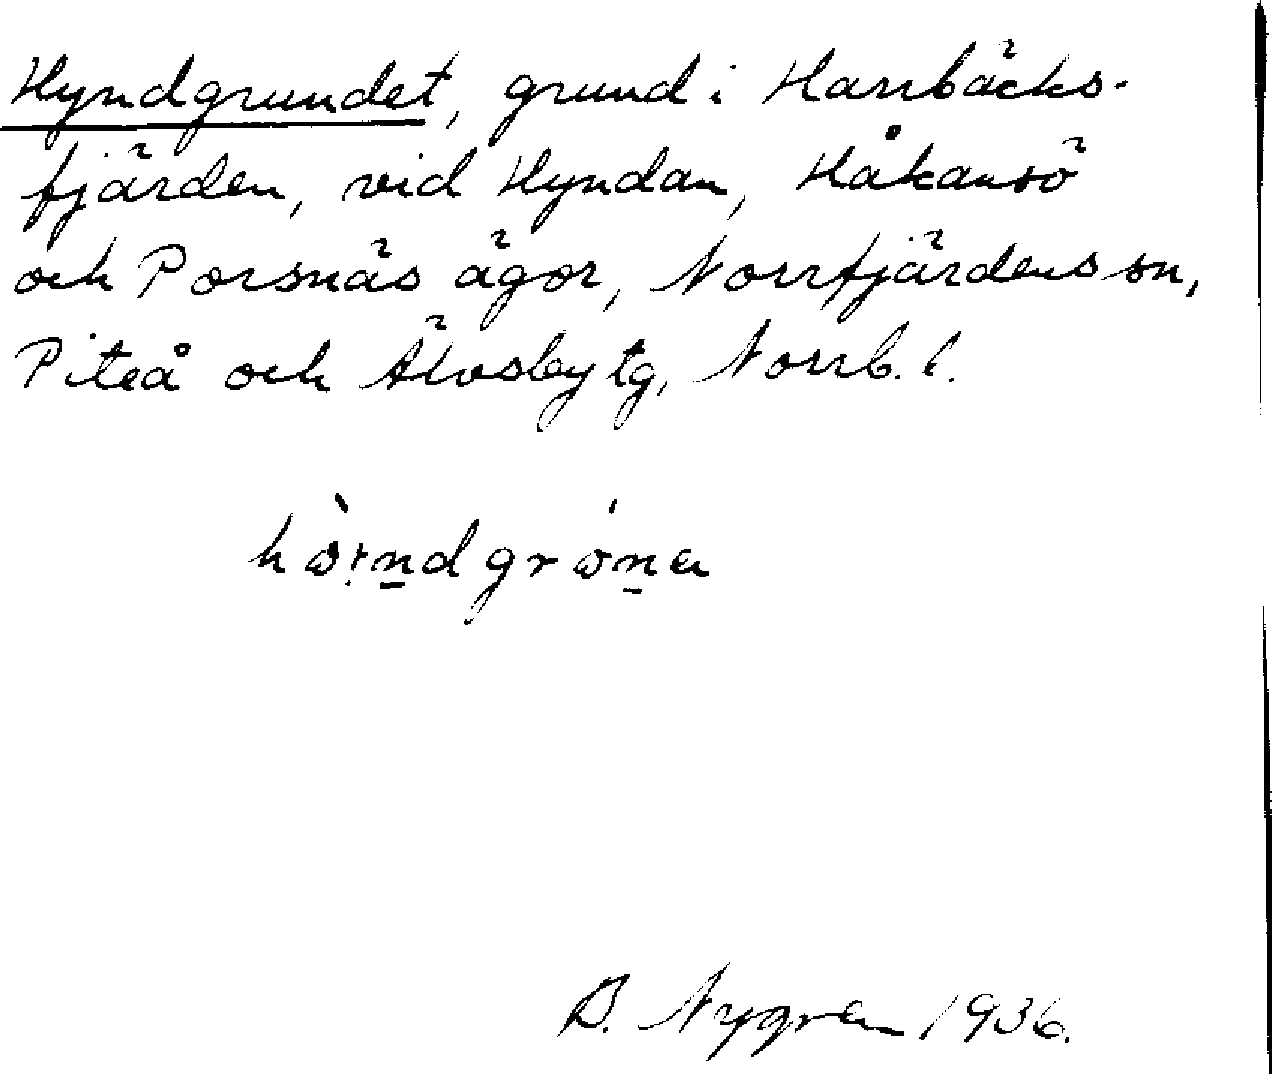 Hyndgrundet, grund i Harrbäcks-
fjärden, vid Hyndan, Håkansö
och Porsnäs ägor, Norrfjärdens sn,
Piteå och Älvsby tg, Norrb. l.
B. Nygren 1936.